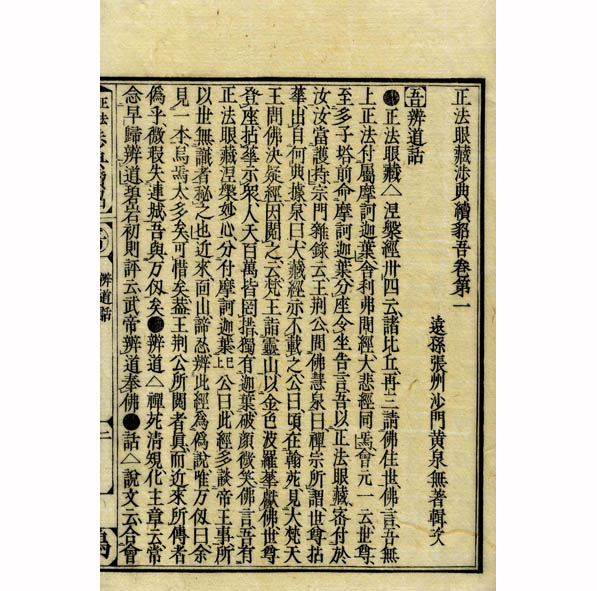 正法眼藏涉典續貂吾卷第一
遠孫張州沙門黃泉無著輯次
吾辨道話
正法眼藏 涅槃經卅四云諸比丘再三請佛住世佛言吾無
上正法付屬摩訶迦葉舍利弗問經大悲經同焉會元一云世尊
至多子塔前命摩訶迦葉分座令坐告言吾以正法眼藏密付於
汝汝當護持宗門雜錄云王荊公問佛慧泉曰禪宗所謂世尊拈
華出自何典據泉曰大藏經亦不載之公曰頃在翰苑見大梵天
王問佛決疑經因閱之云梵王詣靈山以金色波羅華獻佛世尊
登座拈華示衆人天百萬皆罔措獨有迦葉破顏微笑佛言吾有
正法眼藏涅槃妙心分付摩訶迦葉公曰此經多談帝王事所
以世無識者秘之也近來面山諦忍辨此經爲偽說唯万仭曰余
見一本烏焉太多矣可惜矣蓋王荊公所閱者眞而近來所傳者
僞乎微瑕失連城吾與万仭矣 辨道 禪苑清規化主章云常
念早歸辨道碧岩初則評云武帝辨道奉佛 話 說文云合會
辨道話